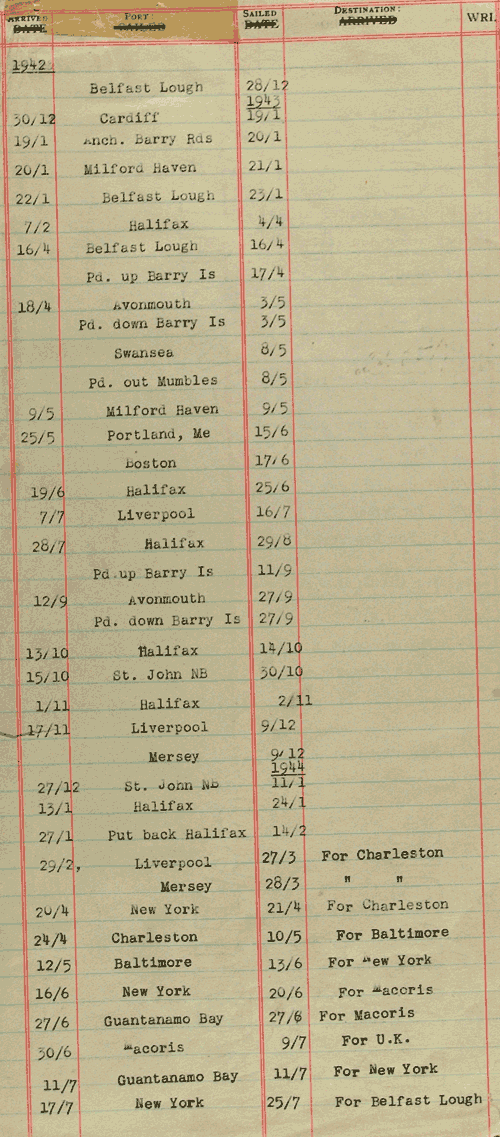 ARRIVED PORT: SAILED DESTINATION: WRI
DATE SAILED DATE ARRIVED
1942
Belfast Lough 28/12
1943
30/12 Cardiff 19/1
19/1 Anch. Barry Rds 20/1
20/1 Milford Haven 21/1
22/1 Belfast Lough 23/1
7/2 Halifax 4/4
16/4 Belfast Lough 16/4
Pd. up Barry Is 17/4
18/4 Avonmouth 3/5
Pd. down Barry Is 3/5
Swansea 8/5
Pd. out Mumbles 8/5
9/5 Milford Haven 9/5
25/5 Portland, Me 15/6
Boston 17/6
19/6 Halifax 25/6
7/7 Liverpool 16/7
28/7 Halifax 29/8
Pd.up Barry Is 11/9
12/9 Avonmouth 27/9
Pd. down Barry Is 27/9
13/10 Halifax 14/10
15/10 St. John NB 30/10
1/11 Halifax 2/11
17/11 Liverpool 9/12
Mersey 9/12
1944
27/12 St. John NB 11/1
13/1 Halifax 24/1
27/1 Put back Halifax 14/2
29/2, Liverpool 27/3 For Charleston
Mersey 28/3 " "
20/4 New York 21/4 For Charleston
24/4 Charleston 10/5 For Baltimore
12/5 Baltimore 13/6 For New York
16/6 New York 20/6 For Macoris
27/6 Guantanamo Bay 27/6 For Macoris
30/6 Macoris 9/7 For U.K.
11/7 Guantanamo Bay 11/7 For New York
17/7 New York 25/7 For Belfast Lough